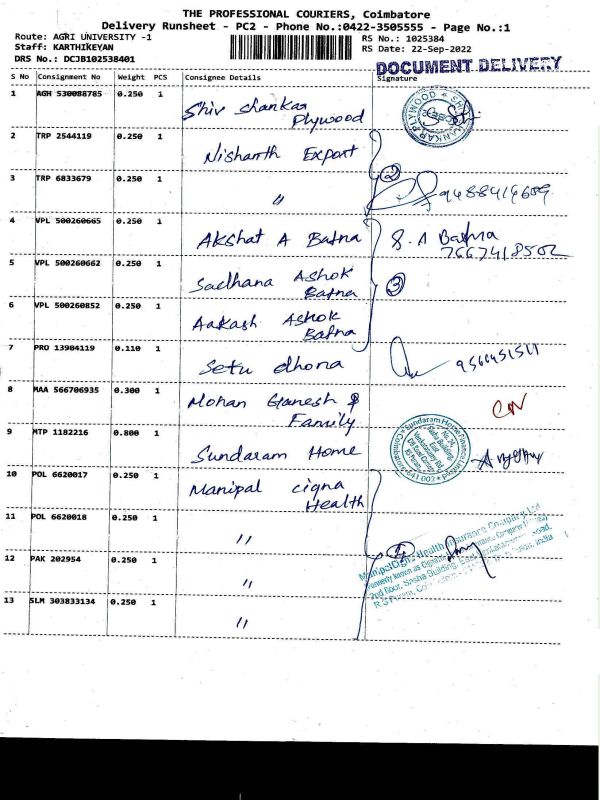 THE PROFESSIONAL COURIERS, Coimbatore
Delivery Runsheet - PC2 - Phone No.:0422-3505555 - Page No.:1
Route: AGRI UNIVERSITY -1
RS No.: 1025384
Staff: KARTHIKEYAN
RS Date: 22-Sep-2022
DRS No.: DCJB102538401
DOCUMENT DELIVERY
S No Consignment No Weight PCS Consignee Details Signature
1 AGH 530088785 0.250 1 Shiv Shankar Plywood
2 TRP 2544119 0.250 1 Nishanth Export
3 TRP 6833679 0.250 1 " ②
4 VPL 500260665 0.250 1 Akshat A Bafna S. A Bafna
7667418502
5 VPL 500260662 0.250 1 Sadhana Ashok Bafna ③
6 VPL 500260852 0.250 1 Aakash Ashok Bafna
7 PRO 13904119 0.110 1 Setu dhona
8 MAA 566706935 0.300 1 Mohan Ganesh & Family
9 MTP 1182216 0.800 1 Sundaram Home
10 POL 6620017 0.250 1 Manipal cigna Health
11 POL 6620018 0.250 1 "
12 PAK 202954 0.250 1 " ④
13 SLM 303833134 0.250 1 "